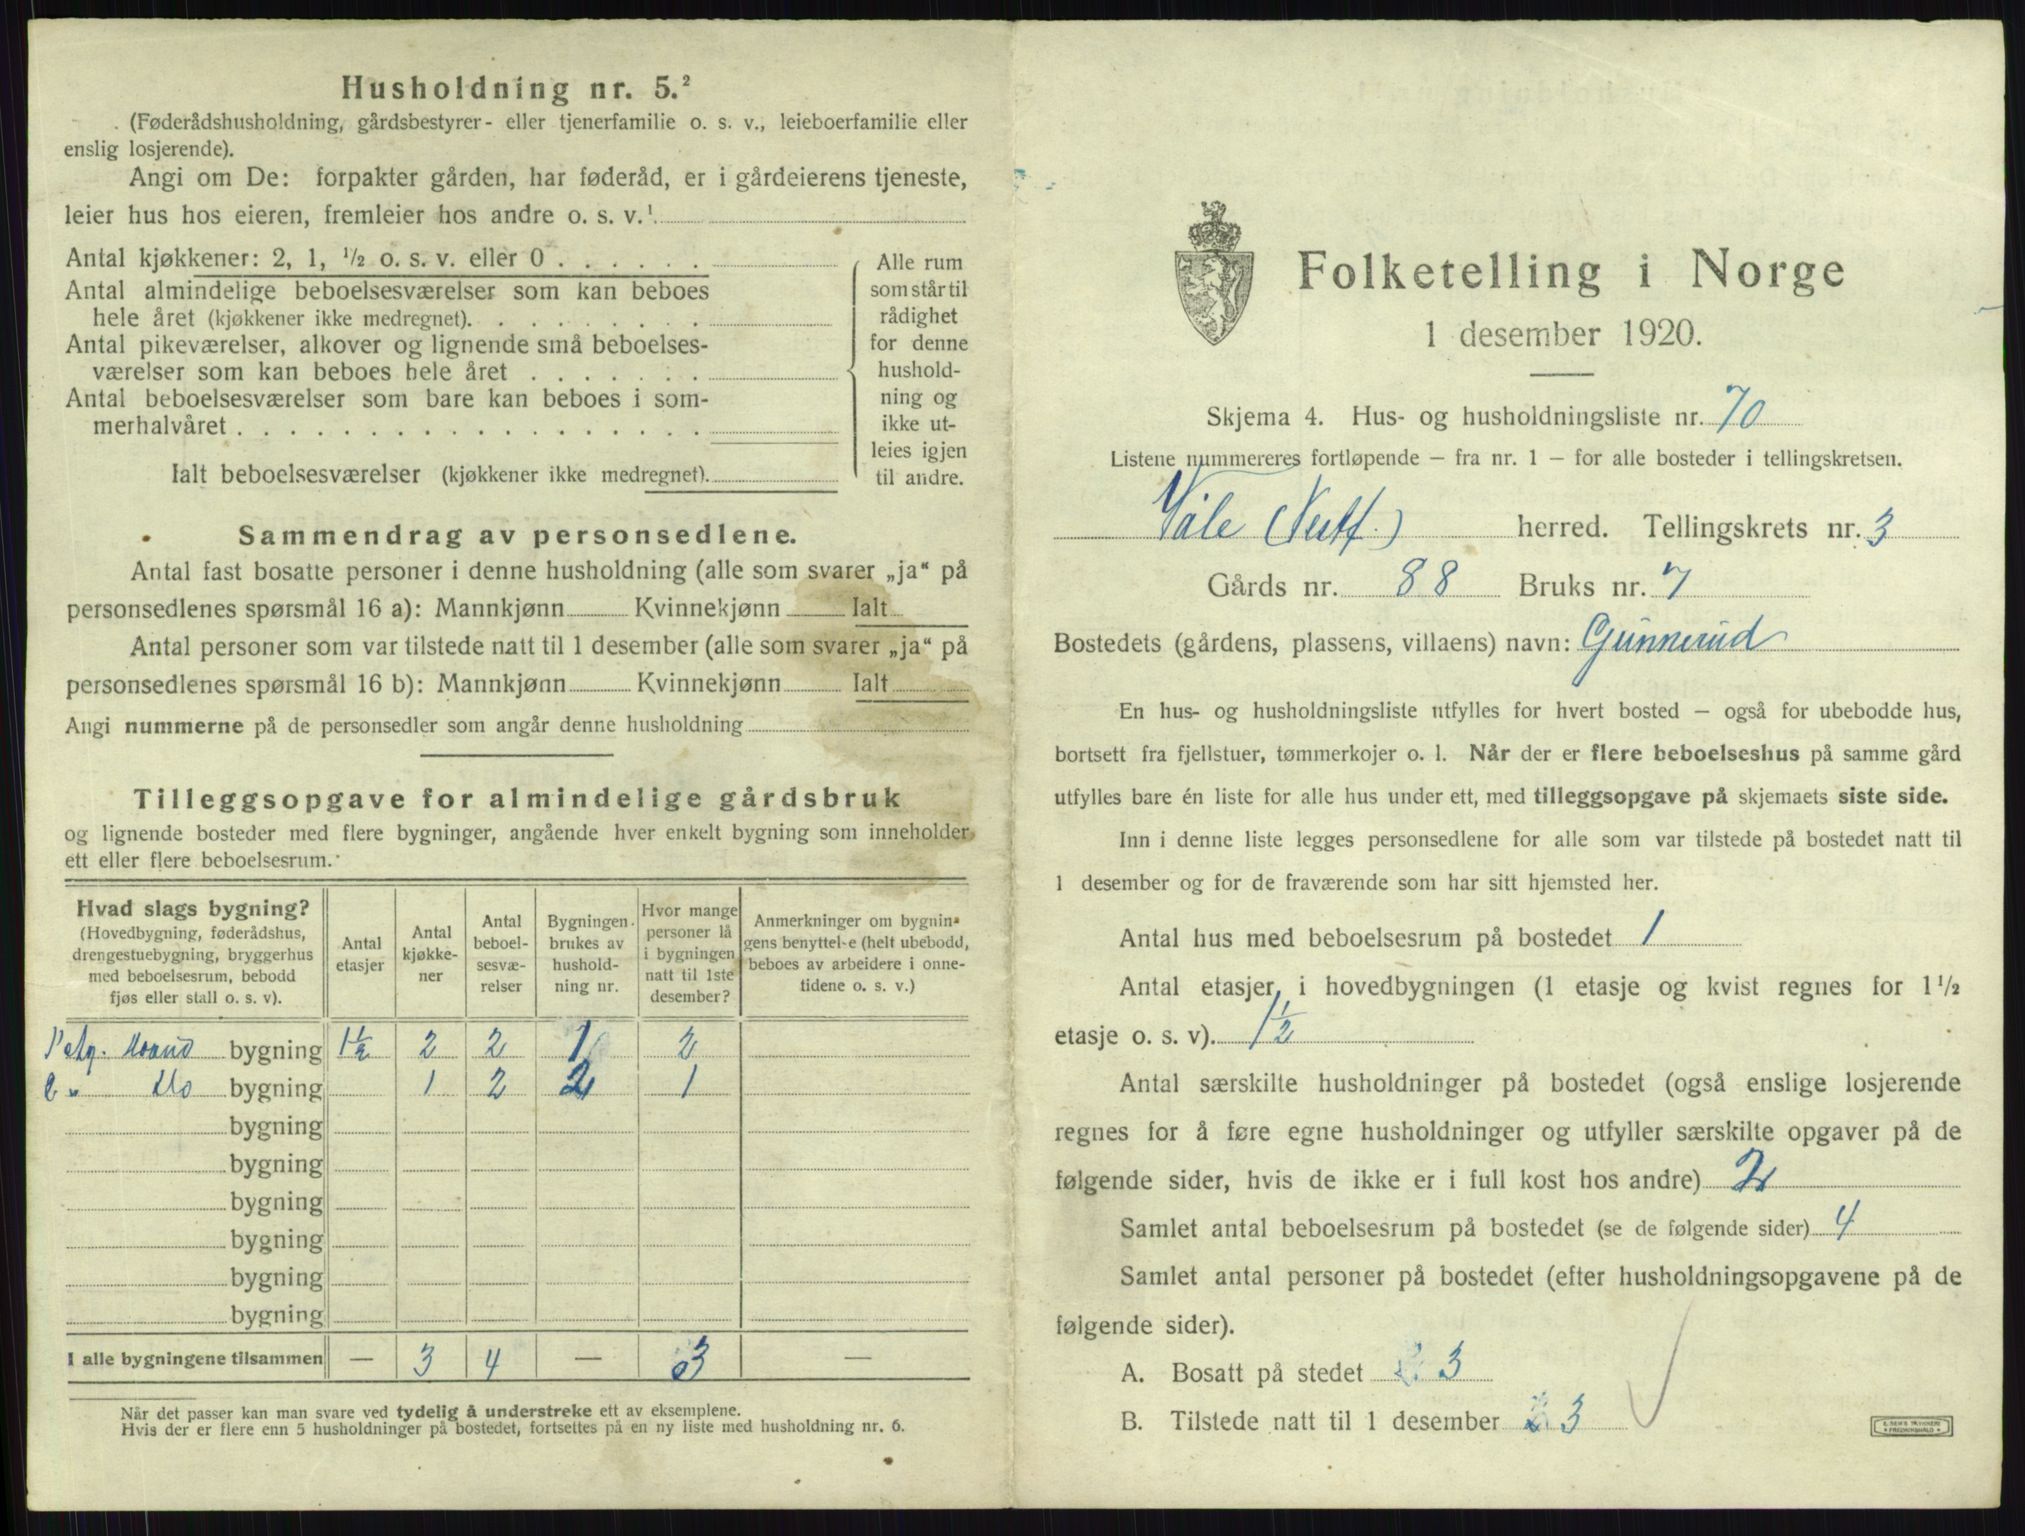 Husholdning nr. 5.²
(Føderådshusholdning, gårdsbestyrer- eller tjenerfamilie o. s. v., leieboerfamilie eller
enslig losjerende).
Angi om De: forpakter gården, har føderåd, er i gårdeierens tjeneste,
leier hus hos eieren, fremleier hos andre o. s. v.¹
Antal kjøkkener: 2, 1, ½ o. s. v. eller 0
Antal almindelige beboelsesværelser som kan beboes
hele året (kjøkkener ikke medregnet).
Antal pikeværelser, alkover og lignende små beboelses-
værelser som kan beboes hele året
Antal beboelsesværelser som bare kan beboes i som-
merhalvåret
Ialt beboelsesværelser (kjøkkener ikke medregnet).
Alle rum
som står til
rådighet
for denne
hushold-
ning og
ikke ut-
leies igjen
til andre.
Sammendrag av personsedlene.
Antal fast bosatte personer i denne husholdning (alle som svarer „ja“ på
personsedlenes spørsmål 16 a): Mannkjønn Kvinnekjønn Ialt
Antal personer som var tilstede natt til 1 desember (alle som svarer „ja“ på
personsedlenes spørsmål 16 b): Mannkjønn Kvinnekjønn Ialt
Angi nummerne på de personsedler som angår denne husholdning
Tilleggsopgave for almindelige gårdsbruk
og lignende bosteder med flere bygninger, angående hver enkelt bygning som inneholder
ett eller flere beboelsesrum.
Hvad slags bygning?
(Hovedbygning, føderådshus,
drengestuebygning, bryggerhus
med beboelsesrum, bebodd
fjøs eller stall o. s. v).
Antal
etasjer
Antal
kjøkke-
ner
Antal
beboel-
sesvæ-
relser
Bygningen
brukes av
hushold-
ning nr.
Hvor mange
personer lå
i bygningen
natt til 1ste
desember?
Anmerkninger om bygnin-
gens benyttelse (helt ubebodd,
beboes av arbeidere i onne-
tidene o. s. v.)
bygning 1½ 2 2 1 2
bygning 1 2 2 1
bygning
bygning
bygning
bygning
bygning
bygning
I alle bygningene tilsammen — 3 4 — 3 —
Når det passer kan man svare ved tydelig å understreke ett av eksemplene.
Hvis der er flere enn 5 husholdninger på bostedet, fortsettes på en ny liste med husholdning nr. 6.
Folketelling i Norge
1 desember 1920.
Skjema 4. Hus- og husholdningsliste nr. 70
Listene nummereres fortløpende – fra nr. 1 – for alle bosteder i tellingskretsen.
Våle (Vestf.) herred. Tellingskrets nr. 3
Gårds nr. 88 Bruks nr. 7
Bostedets (gårdens, plassens, villaens) navn: Gunnerud
En hus- og husholdningsliste utfylles for hvert bosted – også for ubebodde hus,
bortsett fra fjellstuer, tømmerkojer o. l. Når der er flere beboelseshus på samme gård
utfylles bare én liste for alle hus under ett, med tilleggsopgave på skjemaets siste side.
Inn i denne liste legges personsedlene for alle som var tilstede på bostedet natt til
1 desember og for de fraværende som har sitt hjemsted her.
Antal hus med beboelsesrum på bostedet 1
Antal etasjer i hovedbygningen (1 etasje og kvist regnes for 1½
etasje o. s. v). 1½
Antal særskilte husholdninger på bostedet (også enslige losjerende
regnes for å føre egne husholdninger og utfyller særskilte opgaver på de
følgende sider, hvis de ikke er i full kost hos andre) 2
Samlet antal beboelsesrum på bostedet (se de følgende sider) 4
Samlet antal personer på bostedet (efter husholdningsopgavene på de
følgende sider).
A. Bosatt på stedet 3
B. Tilstede natt til 1 desember 3